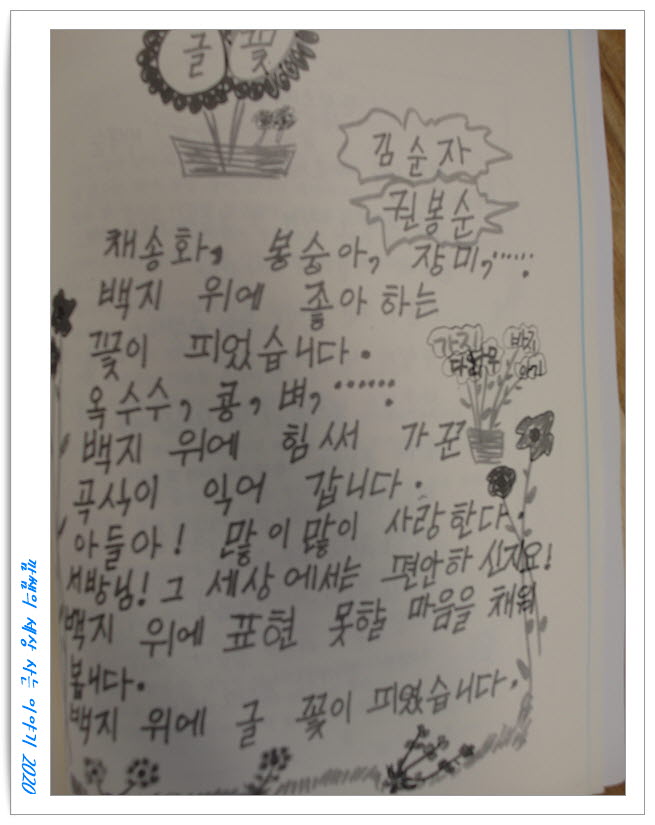 글 꽃
김순자
권봉순
채송화, 봉숭아, 장미,……
백지 위에 좋아하는
꽃이 피었습니다.
옥수수, 콩, 벼, ……
백지 위에 힘써 가꾼
곡식이 익어 갑니다.
아들아! 많이많이 사랑한다.
서방님! 그 세상에서는 편안하신지요!
백지 위에 표현 못할 마음을 채워
봅니다.
백지 위에 글 꽃이 피였습니다.
2020